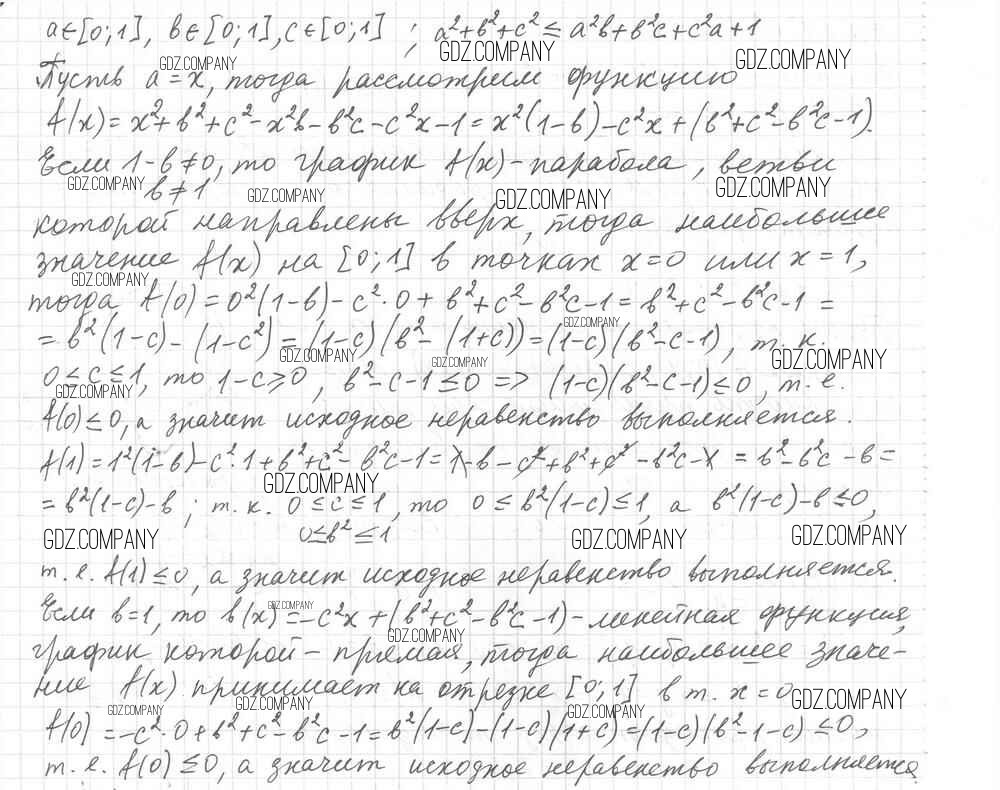 a∈[0;1], в∈[0;1], c∈[0;1] ; a²+в²+c² ≤ a²в+в²c+c²a+1
GDZ.COMPANY GDZ.COMPANY GDZ.COMPANY
Пусть a=x, тогда рассмотрим функцию
f(x)=x²+в²+c²-x²в-в²c-c²x-1=x²(1-в)-c²x+(в²+c²-в²c-1).
Если 1-в≠0, то график f(x)-парабола, ветви
GDZ.COMPANY в≠1 GDZ.COMPANY GDZ.COMPANY GDZ.COMPANY
которой направлены вверх, тогда наибольшие
значение f(x) на [0;1] в точках x=0 или x=1,
GDZ.COMPANY
тогда f(0)=0²(1-в)-c²·0+в²+c²-в²c-1=в²+c²-в²c-1=
GDZ.COMPANY
=в²(1-c)-(1-c²)=(1-c)(в²-(1+c))=(1-c)(в²-c-1), т.к.
GDZ.COMPANY GDZ.COMPANY GDZ.COMPANY
0≤c≤1, то 1-c≥0, в²-c-1≤0 => (1-c)(в²-c-1)≤0, т.е.
GDZ.COMPANY
f(0)≤0, а значит исходное неравенство выполняется.
f(1)=1²(1-в)-c²·1+в²+c²-в²c-1=1-в-c²+в²+c²-в²c-1=в²-в²c-в=
GDZ.COMPANY
=в²(1-c)-в; т.к. 0≤c≤1, то 0≤в²(1-c)≤1, а в²(1-c)-в≤0,
GDZ.COMPANY 0≤в²≤1 GDZ.COMPANY GDZ.COMPANY
т.е. f(1)≤0, а значит исходное неравенство выполняется.
GDZ.COMPANY
Если в=1, то в(x)=-c²x+(в²+c²-в²c-1)-линейная функция,
GDZ.COMPANY
график которой-прямая, тогда наибольшее значе-
ние f(x) принимает на отрезке [0;1] в т. x=0
GDZ.COMPANY GDZ.COMPANY GDZ.COMPANY GDZ.COMPANY
f(0)=-c²·0+в²+c²-в²c-1=в²(1-c)-(1-c)(1+c)=(1-c)(в²-1-c)≤0,
т.е. f(0)≤0, а значит исходное неравенство выполняется